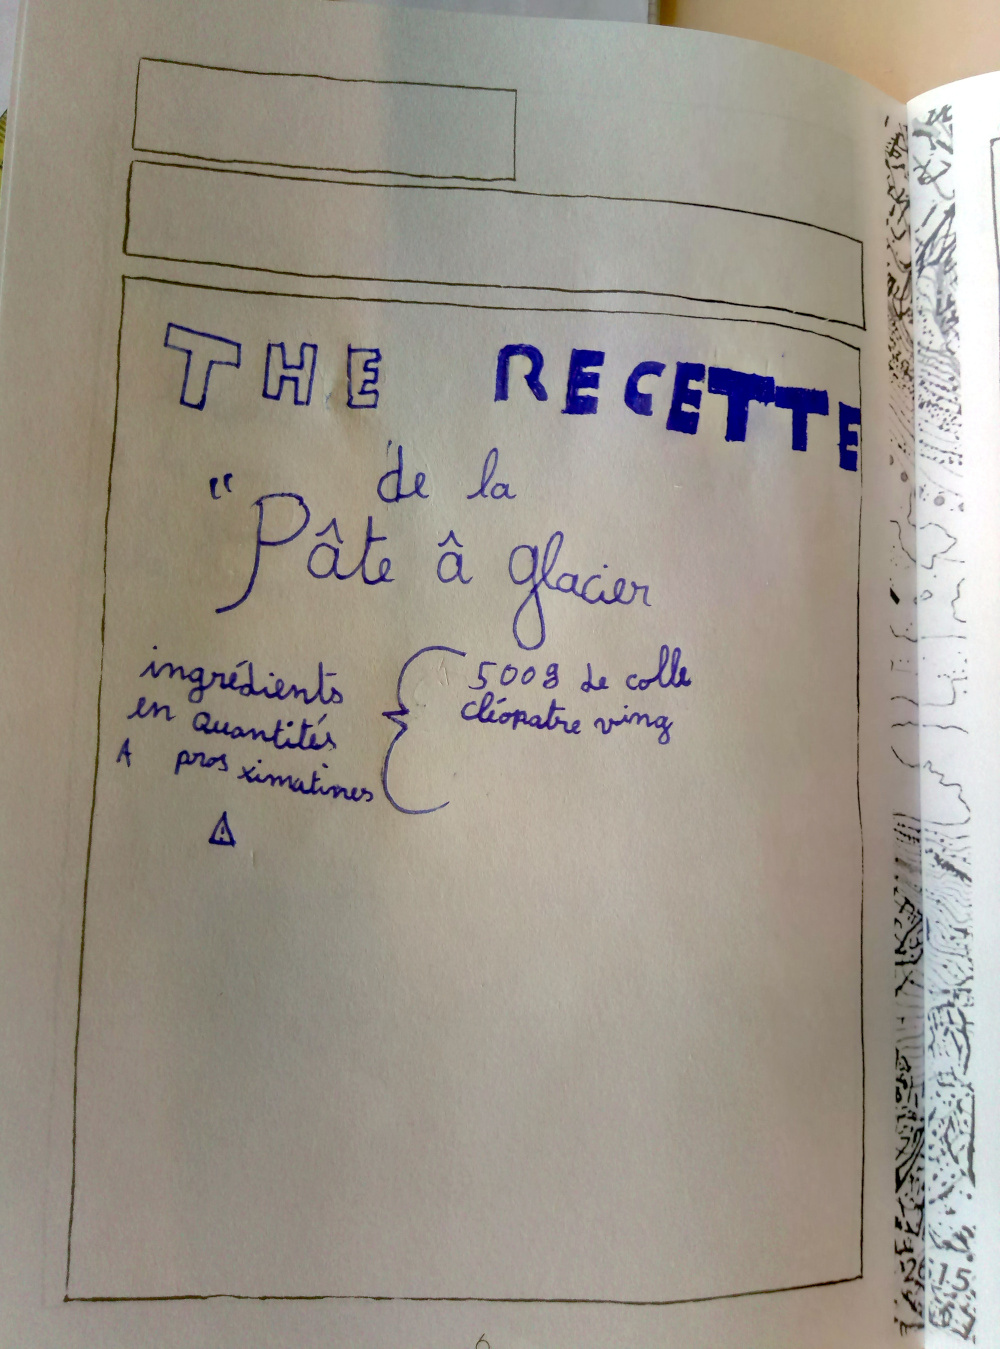 THE RECETTE
de la
"Pâte â glacier
ingrédients
en quantités
A pros ximatives
500g de colle
cléopatre ving
6